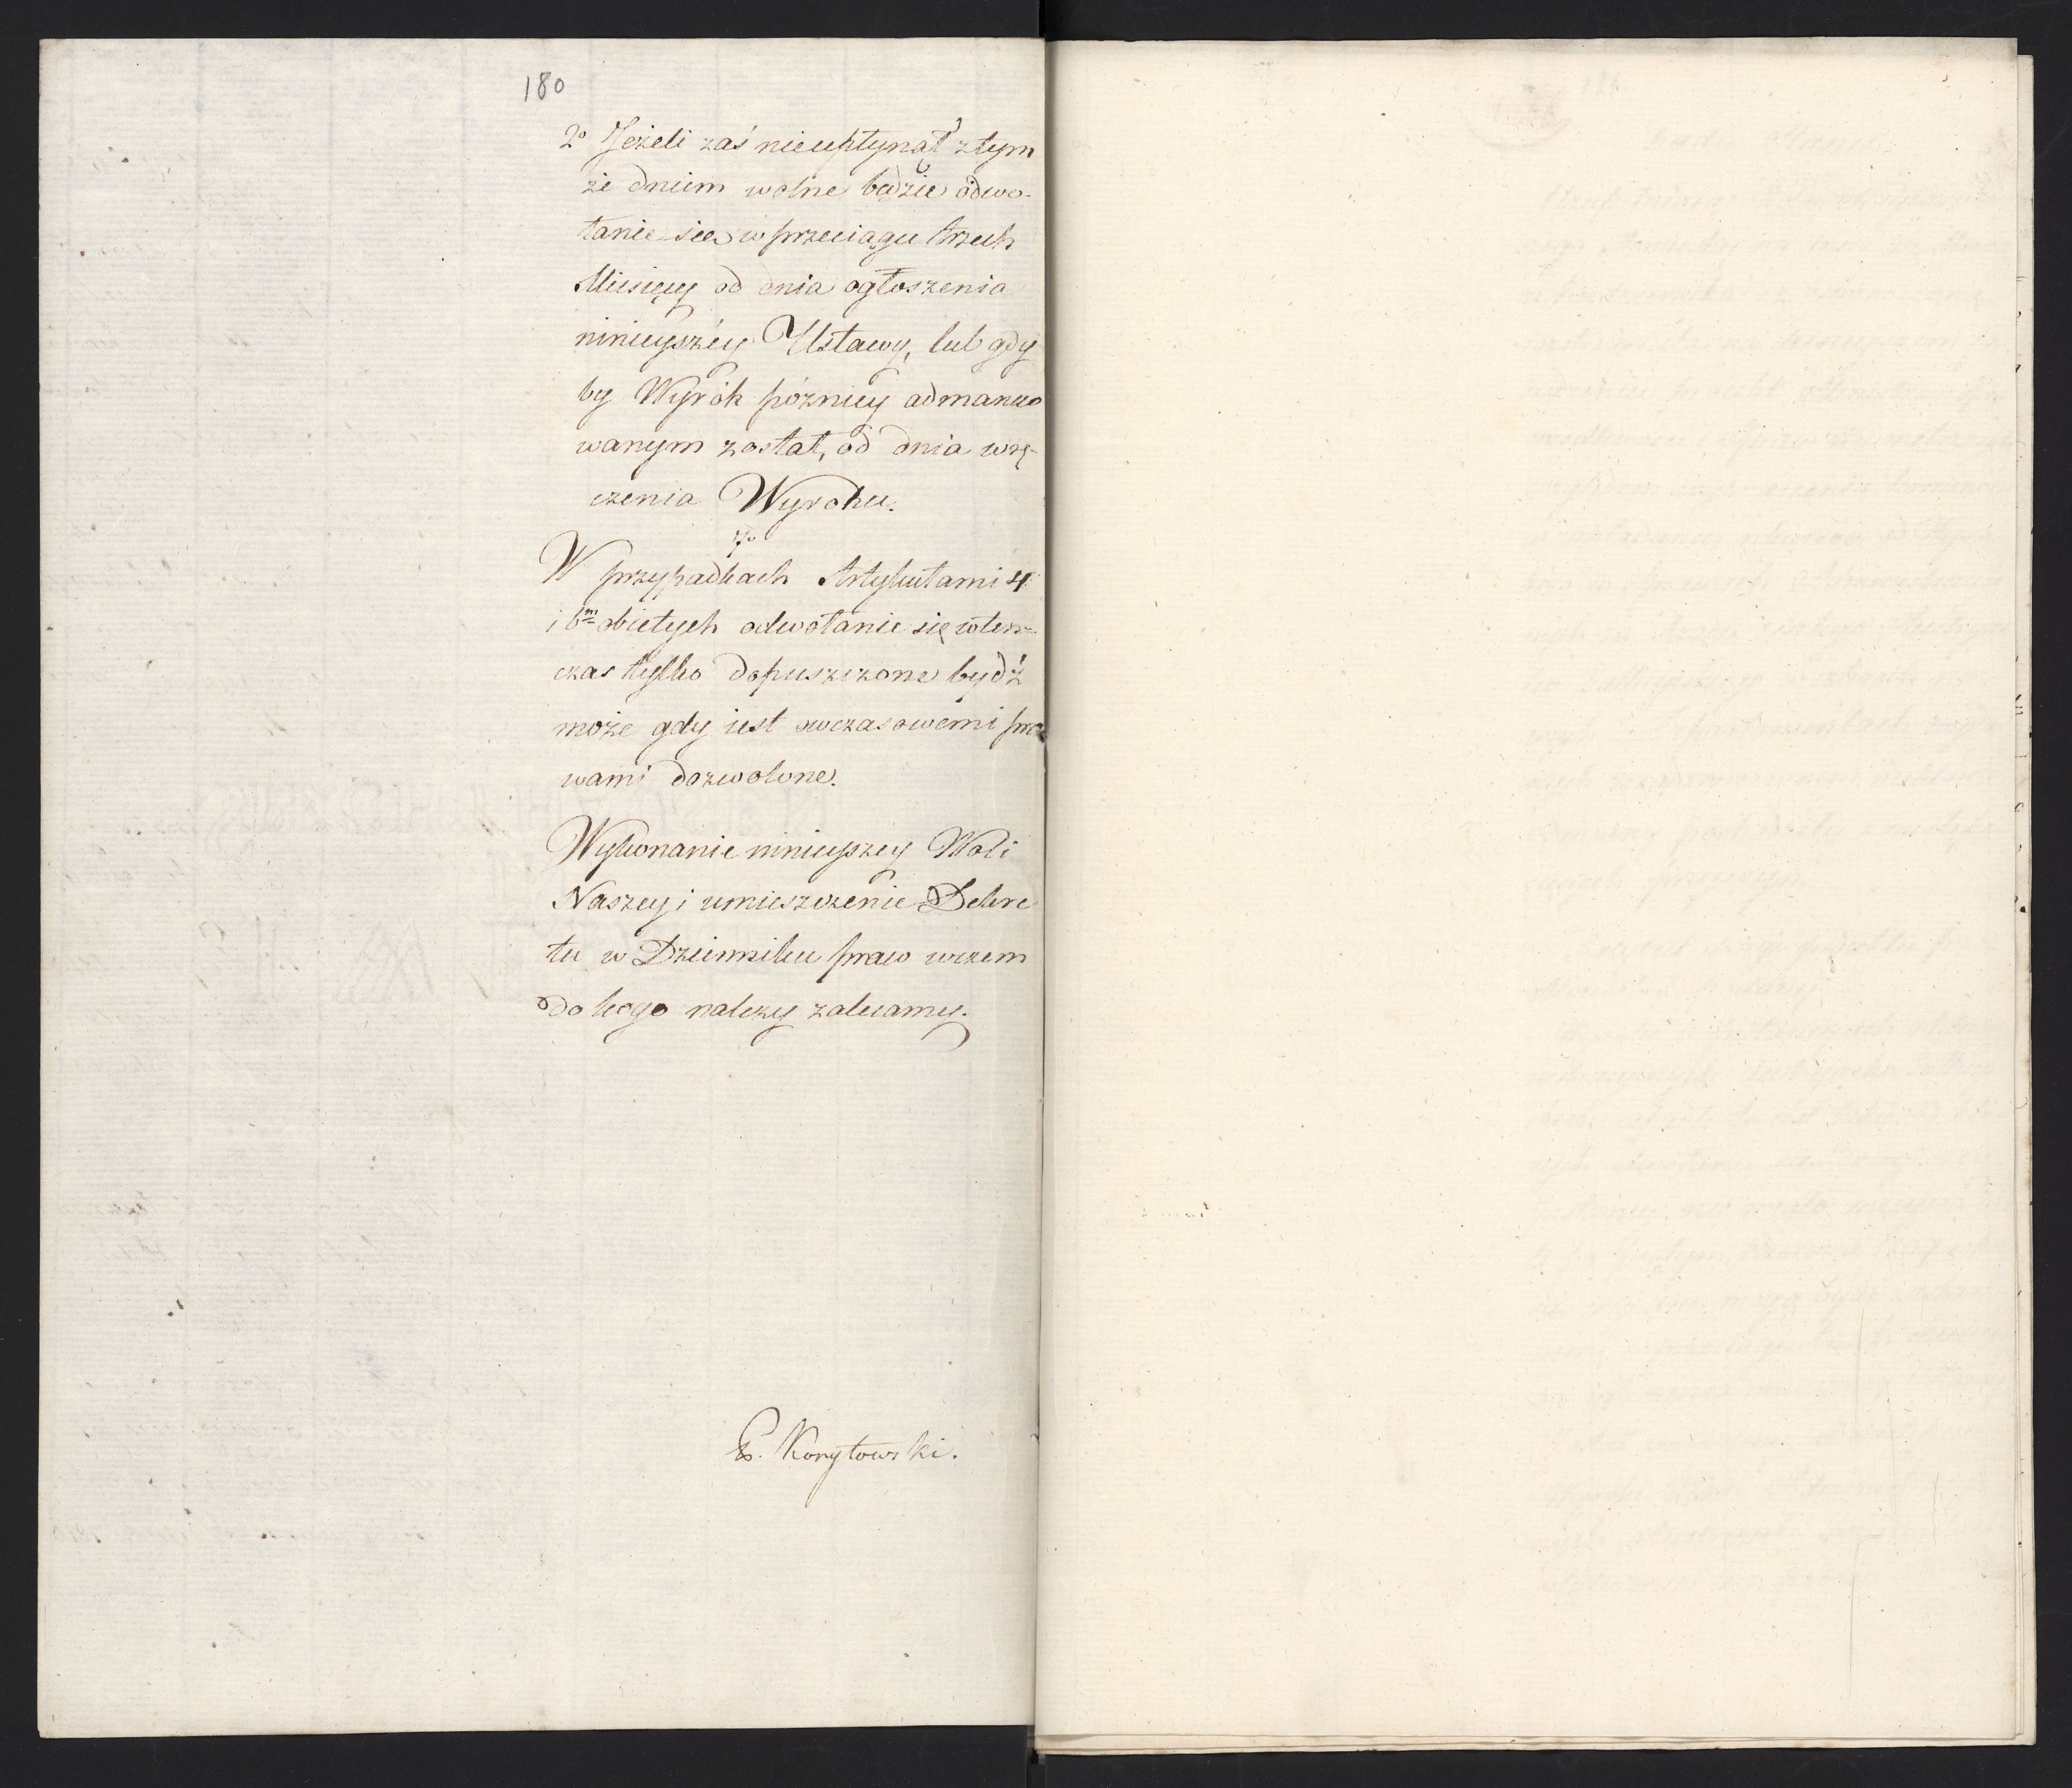 180
2o Jeżeli zaś nieupłynął z tym
że dniem wolne będzie odwo-
łanie się w przeciągu trzech
Miesięcy od dnia ogłoszenia
ninieyszéy Ustawy, lub gdy
by Wyrok późniey
wanym został, od dnia wrę-
czenia Wyroku.
7o
W przypadkach Artykułami 4
i 6m obiętych odwołanie się wten-
czas tylko dopuszczone bydź
może gdy iest owczasowemi pra
wami dozwolone.
Wykonanie ninieyszey Woli
Naszey i umieszczenie Dekre
tu w Dzienniku praw wczem
do kogo należy zalecamy.
E. Korytowski.